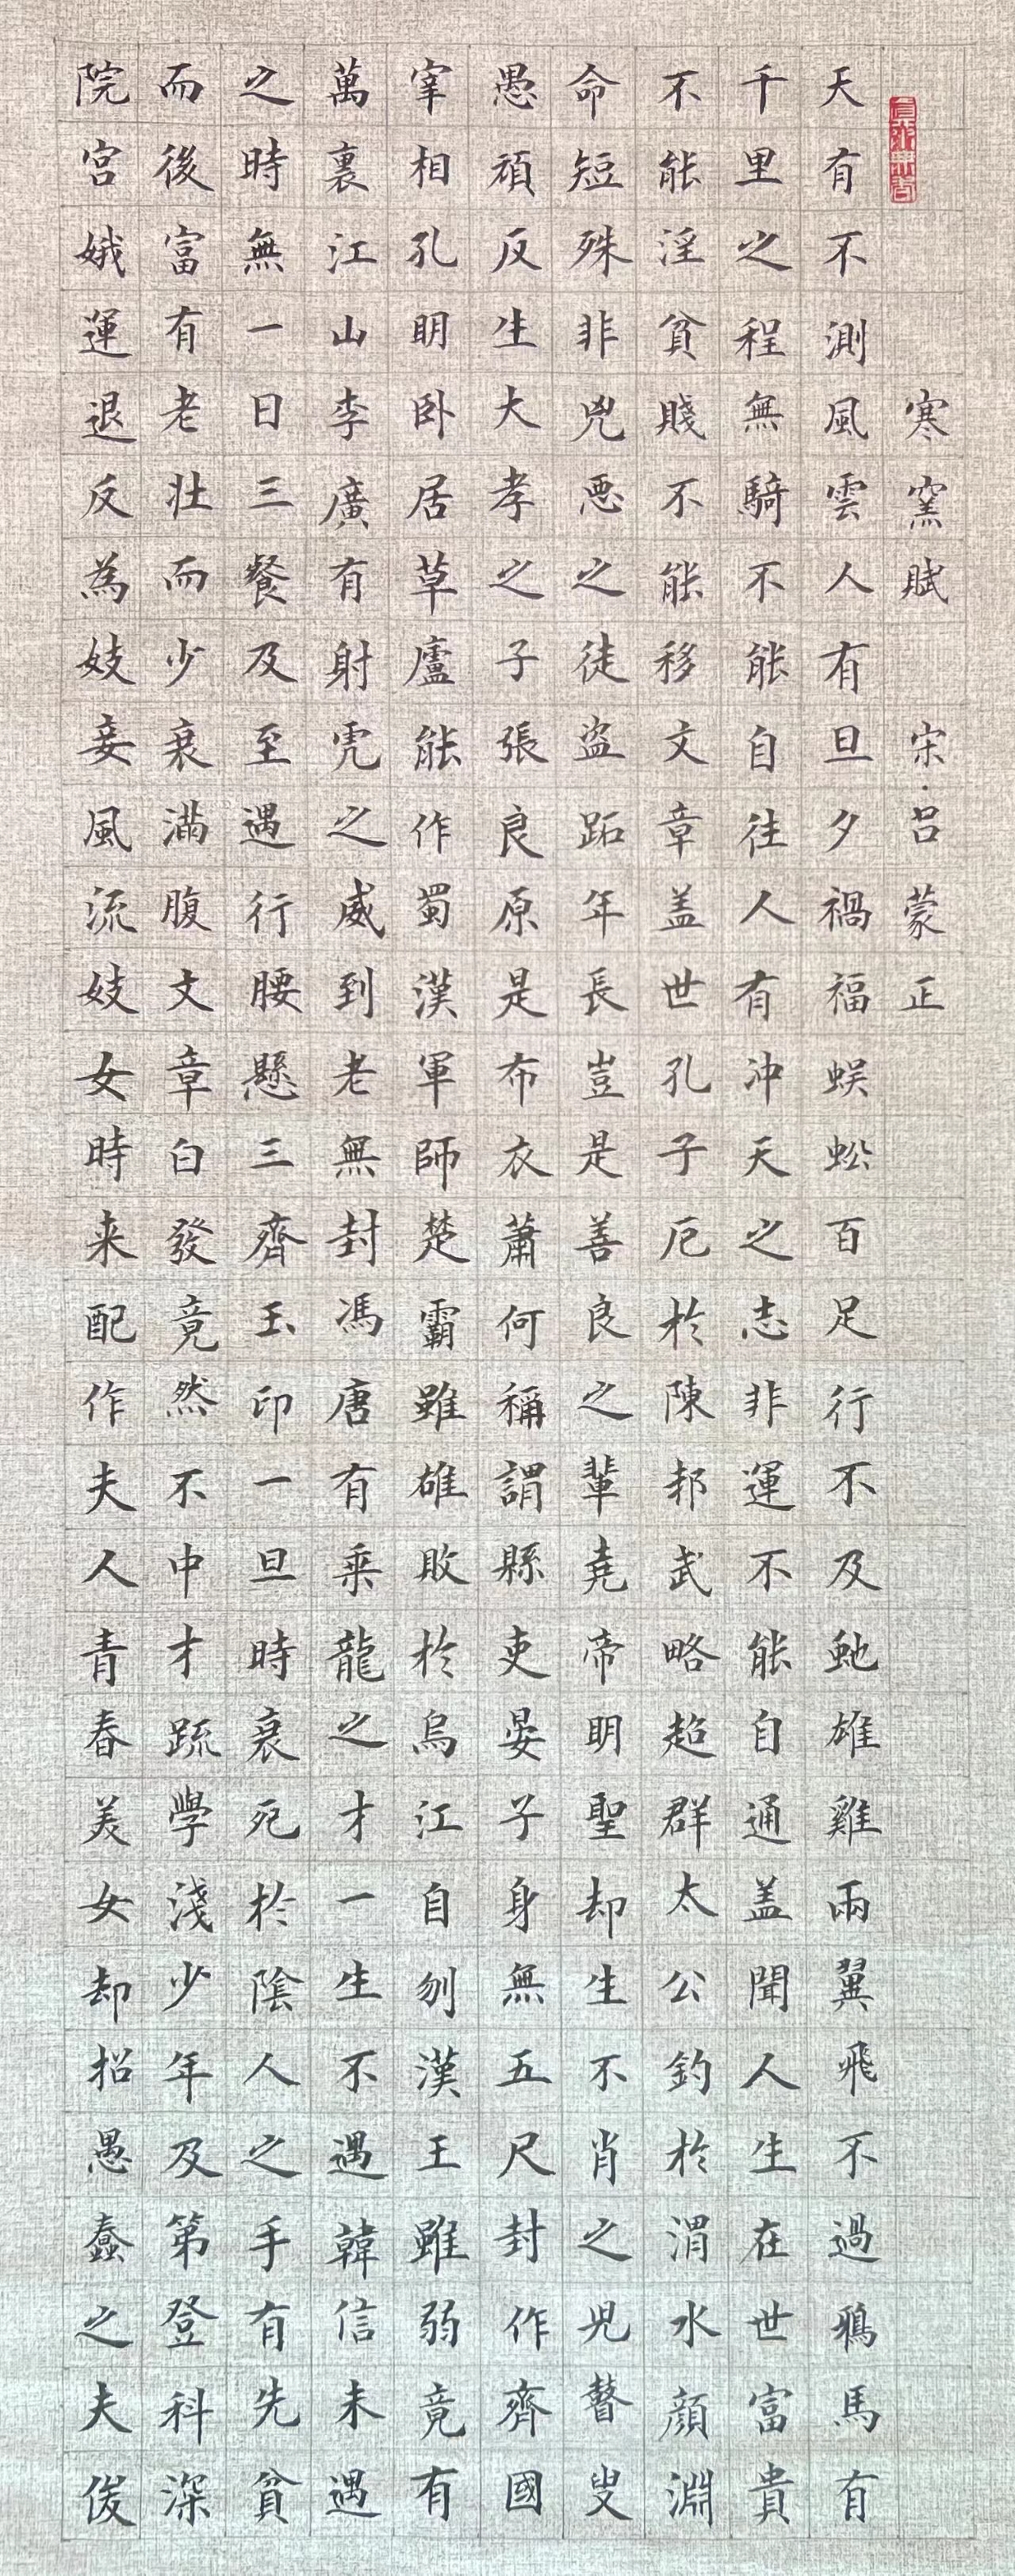 寒窯賦 宋·呂蒙正
天有不測風雲人有旦夕禍福蜈蚣百足行不及虵雄雞兩翼飛不過鴉馬有
千里之程無騎不能自往人有沖天之志非運不能自通盖聞人生在世富貴
不能淫貧賤不能移文章盖世孔子厄於陳邦武略超群太公釣於渭水顔淵
命短殊非兇悪之徒盗跖年長豈是善良之輩堯帝明聖却生不肖之児瞽叟
愚頑反生大孝之子張良原是布衣蕭何稱謂縣吏晏子身無五尺封作齊國
宰相孔明卧居草廬能作蜀漢軍師楚霸雖雄敗於烏江自刎漢王雖弱竟有
萬裏江山李廣有射虎之威到老無封馮唐有乘龍之才一生不遇韓信未遇
之時無一日三餐及至遇行腰懸三齊玉印一旦時衰死於陰人之手有先貧
而後富有老壯而少衰滿腹文章白發竟然不中才疏學淺少年及第登科深
院宮娥運退反為妓妾風流妓女時来配作夫人青春美女却招愚蠢之夫俊